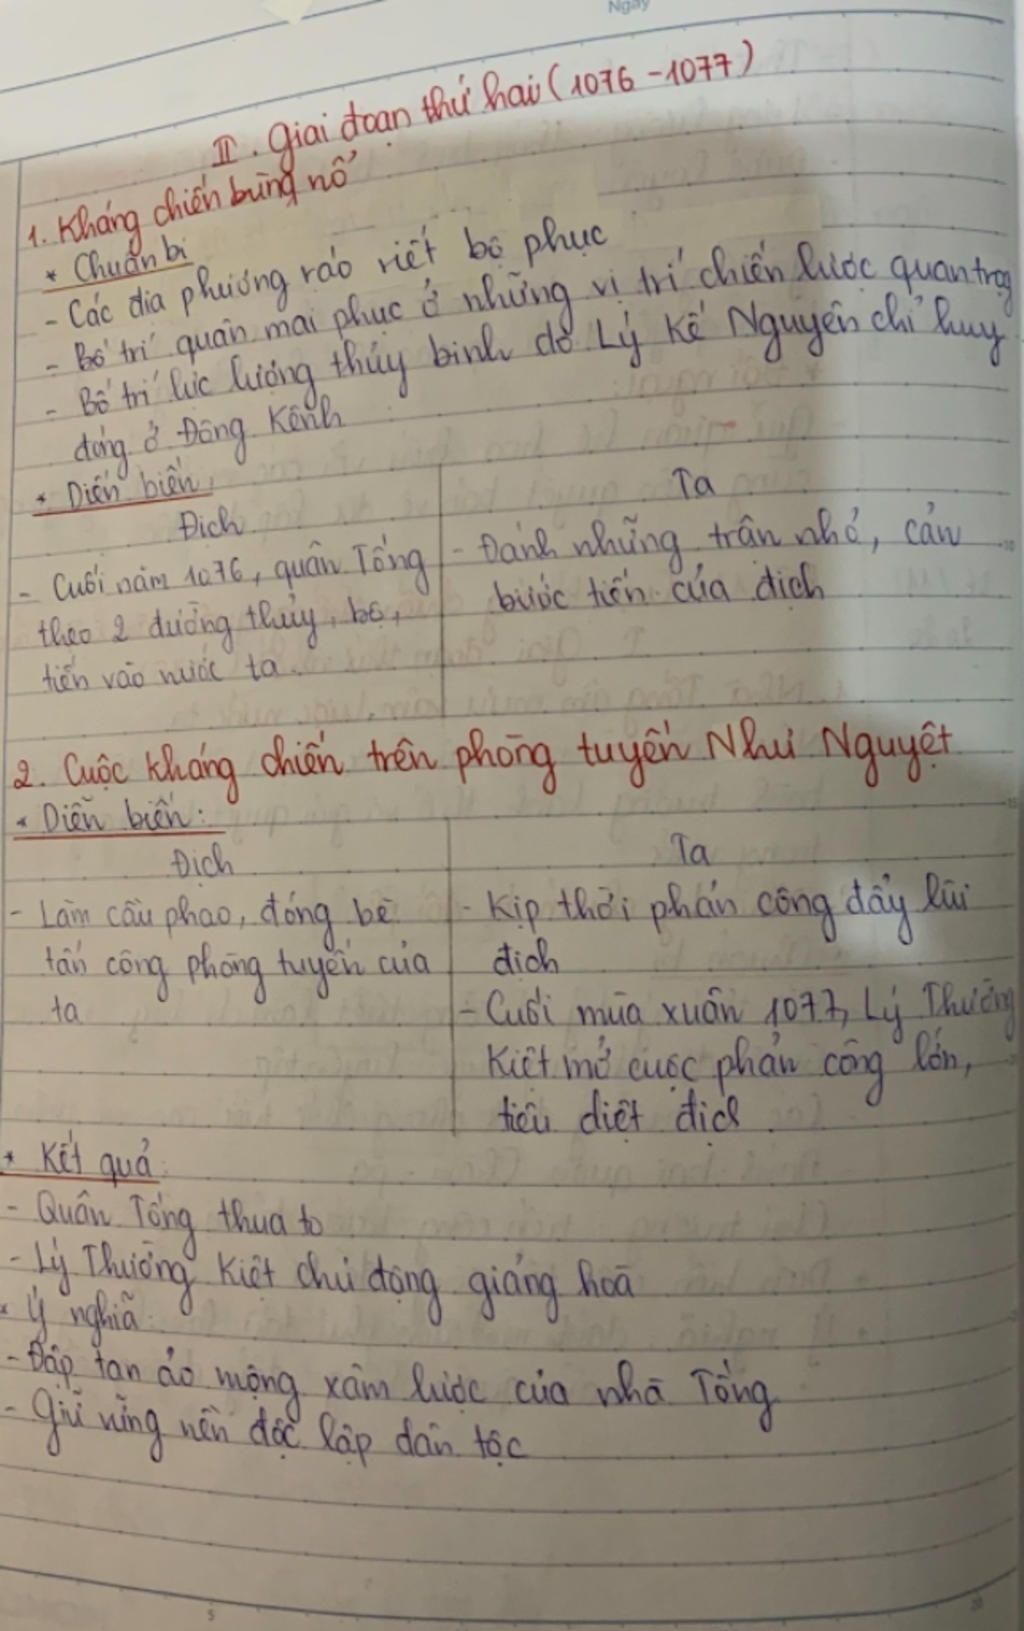 Ngày
II. Giai đoạn thứ hai (1076 - 1077)
1. Kháng chiến bùng nổ
* Chuẩn bị
- Các địa phương ráo riết bố phục
- Bố trí quân mai phục ở những vị trí chiến lược quan trọng
- Bố trí lực lượng thủy binh do Lý Kế Nguyên chỉ huy
đóng ở Đông Kênh
* Diến biến:
Địch
- Cuối năm 1076, quân Tống
theo 2 đường thủy, bộ,
tiến vào nước ta.
Ta
- Đánh những trận nhỏ, cản
bước tiến của địch
2. Cuộc kháng chiến trên phòng tuyến Như Nguyệt
* Diễn biến:
Địch
- Làm cầu phao, đóng bè
tấn công phòng tuyến của
ta
Ta
- Kịp thời phản công đẩy lùi
địch
- Cuối mùa xuân 1077, Lý Thường
Kiệt mở cuộc phản công lớn,
tiêu diệt địch.
* Kết quả:
- Quân Tống thua to
- Lý Thường Kiệt chủ động giảng hoà
* Ý nghĩa:
- Đập tan ảo mộng xâm lược của nhà Tống
- Giữ vững nền độc lập dân tộc
5
10
15
20